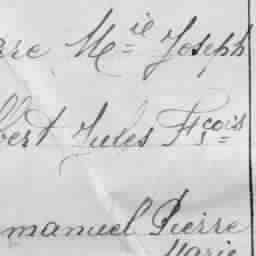 are M^ie Joseph
bert Jules Fçois
manuel Pierre
Marie